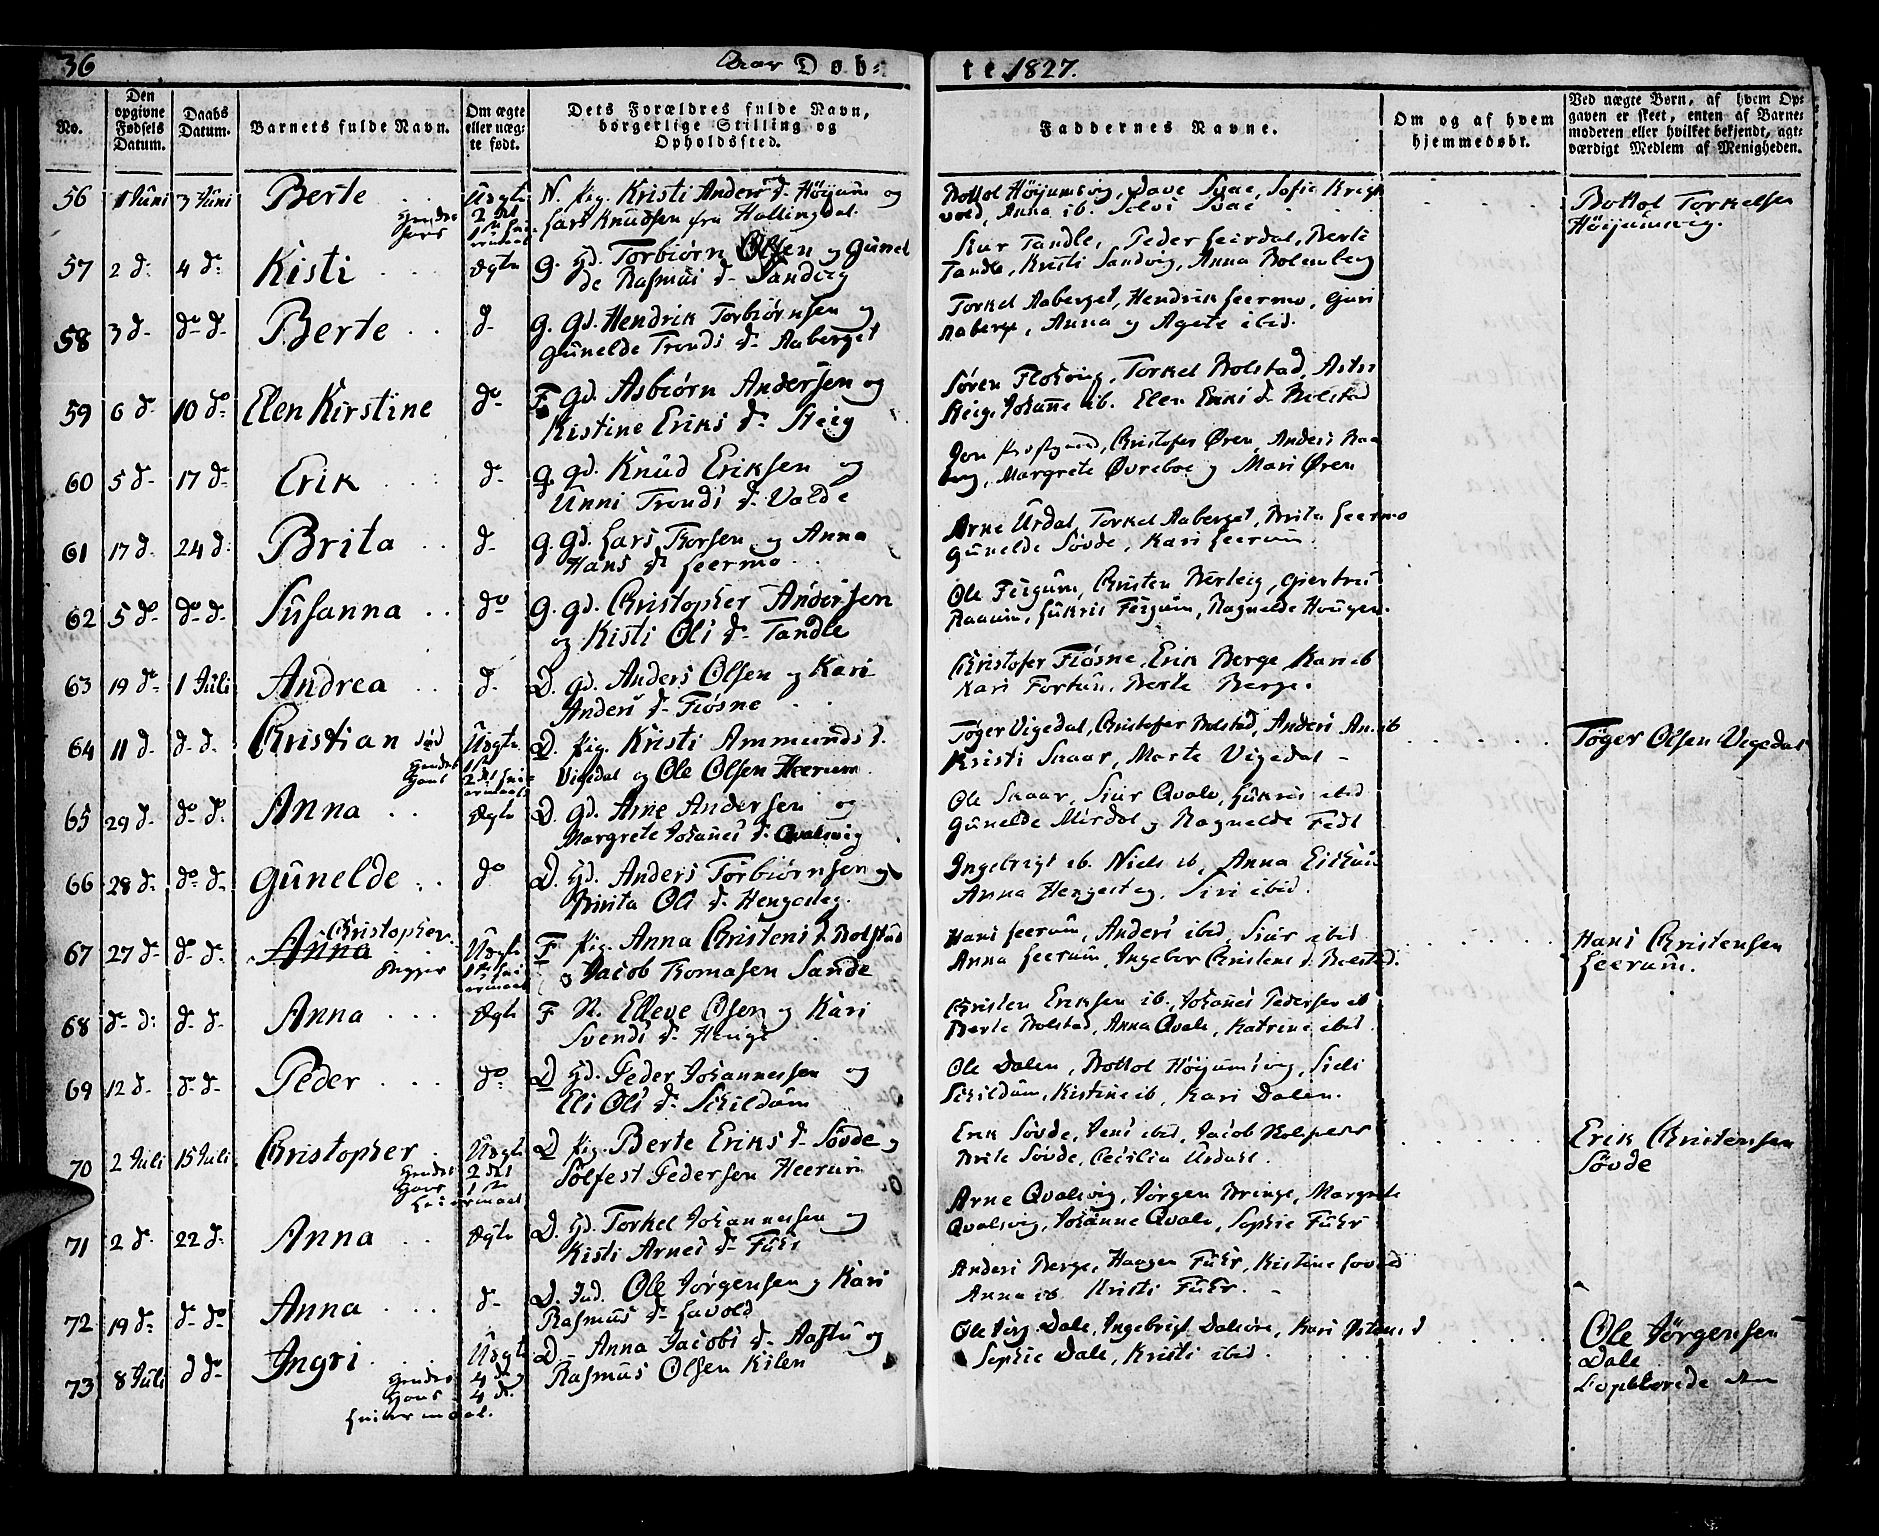 36
Døb-
te 1827.
No.
Den opgivne Fødsels Datum.
Daabs Datum.
Barnets fulde Navn.
Om ægte eller uægte født.
Dets Forældres fulde Navn, borgerlige Stilling og Opholdssted.
Faddernes Navne.
Om og af hvem hjemmedøbt.
Ved uægte Børn, af hvem Opgaven er skeet, enten af Barnemoderen eller hvilket bekjendt, agtværdigt Medlem af Menigheden.
56 1 Juni 3 Juni Berte Uægte
N. pig. Kristi Anders d. Höyum og
Lars Knudsen fra Hallingdal.
Bottol Höijumsvig, Dave Svae, Sofie
vold, Anna ib. Selvi Svae
Bottol Torkelsen
Höijumsvig.
57 2 d. 4 d. Kisti Ægte
G. Gd. Torbiörn Olsen og Gunel
de Rasmus d. Sandvig
Siur Tandle, Peder Leirdal, Berte
Tandle, Kristi Sandvig, Anna
58 3 d. do d. Berte d.
G. Gd. Hendrik Torbiörnsen og
Gunelde Tronds d. Aaberget
Torkel Aaberget, Hendrik Leermo, Guri
Aaberge, Anna og Agete ibid.
59 6 d. 10 do Elen Kirstine do
F. Gd. Asbiörn Andersen og
Kistine Eriks d. Steig
Sören Flohvig, Torkel Bolstad,
Steig, Johanne ib. Elen Eriks d. Bolstad
60 5 d. 17 d. Erik d.
G. gd. Knud Eriksen og
Unni Tronds d. Valde
Jon Prestgaard, Christofer Øren, Anders
Margrete Øvreboe og Mari Øren
61 17 d. 24 d. Brita d.
G. Gd. Lars Thorsen og Anna
Hans d. Leermo
Arne Urdal, Torkel Aaberget, Brita Leermo
Gunelde Sövde, Kari Leerum
62 5 do do d. Susanna do
G. gd. Christopher Andersen
og Kisti Ols d. Tandle
Ole Feigum, Christen
Raaum, Feigum, Ragnelde Hougen.
63 19 do 1 Juli Andrea d.
D. gd. Anders Olsen og Kari
Anders d. Fiösne
Christofer Fiösne, Erik Berge, Kari ib
Kari Fortun, Berte Berge.
64 11 d. d. d. Christian Uægte
D. pig. Kristi Ammunds d.
Vigedal og Ole Olsen Heerum.
Töger Vigedal, Christofer Bolstad, Anders
Kristi Skaar, Marte Vigedal
Töger Olsen Vigedal
65 29 d. do d. Anna Ægte
D. gd. Arne Andersen og
Margrete Johannes d. Qvalsvig
Ole Skaar, Siur Qvale, ibid
Gunelde Mirdal og Ragnelde Fedt
66 28 d. do d. Gunelde do
D. Gd. Anders Torbiörnsen og
Brita Ols d. Hengesteg.
Ingebrigt ib. Niels ib, Anna
Anna Hengesteg, Siri ibid.
67 27 d. do d. Anna Christopher Uægte
F pig. Anna Christens d. Bolstad
og Jacob Thomasen Sande
Hans Leerum, Anders ibid Siur ibid
Anna Leerum, Ingebor Christens d. Bolstad.
Hans Christensen
Leerum.
68 d. d. d. d. Anna Ægte
F N. Elleve Olsen og Kari
Svends d.
Christen Eriksen ib., Johanes Pedersen ib
Berte Bolstad, Anna Qvale, Katrine ibid
69 12 d. d. d. Peder do
D Gd. Peder Johannessen og
Eli Ols d. Skildum
Ole Dalen, Bottol Höyumsvig,
Skildum, Kistine ib, Kari Dalen.
70 2 Juli 15 Juli Christopher Uægte
D pig. Berte Eriks d. Sövde og
Solfest Pedersen Heerum
Erik Sövde, Jens ibid, Jacob
Brite Sövde, Cecilia
Erik Christensen
Sövde
71 2 d. 22 d. Anna Ægte
D. Gd. Torkel Johannessen og
Kisti Arnes d. Fuhr
Arne Qvalsvig, Jörgen Bringe, Margrete
Qvalsvig, Johanne Qvale, Sophie Fuhr
72 19 d. d. do Anna d.
D. Ind. Ole Jörgensen og Kari
Rasmus d. Lavold
Anders Berge, Haagen Fuhr, Kistine
Anna ib. Kristi Fuhr.
73 8 Juli d do Ingri Uægte
D. Anna Jacobs d. og
Rasmus Olsen Kilen
Ole Jörg. Dale, Ingebrigt Dalsöre, Kari
Sophie Dale, Kristi ibid
Ole Jörgensen
Dale